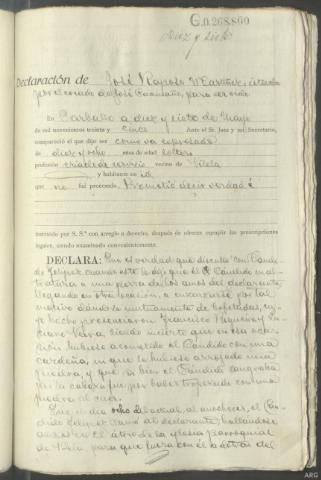 G.0.268,860
Diez y siete
Declaración de José Raposo
para ser oído
En Carballo a diez y siete de Mayo
de mil novecientos treinta y cinco Ante el Sr. Juez y mi Secretario,
compareció el que dijo ser como va expresado
de diez y ocho años de edad soltero
profesión criado de servicio vecino de Vilela
y habitante en id
que no fué procesado. Prometió decir verdad é
instruido por S. Sª con arreglo a derecho, después de ofrecer cumplir las prescripciones
legales, siendo examinado convenientemente.
DECLARA: Que es verdad que discutió con Cándi-
do cuando este le dijo que el Cándido mal-
tratara a una perra de los amos del declarante,
llegando en otra ocasión, a enzarzarse por tal
motivo dándose mutuamente de bofetadas, cu-
yo hecho presenciaron Francisco
Vara, siendo incierto que en esa oca-
sión hubiese acometido el Cándido con una
ni que le hubiese arrojado una
piedra, y que si bien el Cándido sangraba
por la cabeza fué por haber tropezado con una
piedra al caer.
Que el día ocho del actual, al anochecer, el Cán-
dido llamó al declarante, hallándose
en el atrio de la iglesia parroquial
de para que fuera con él a detrás del
ARG